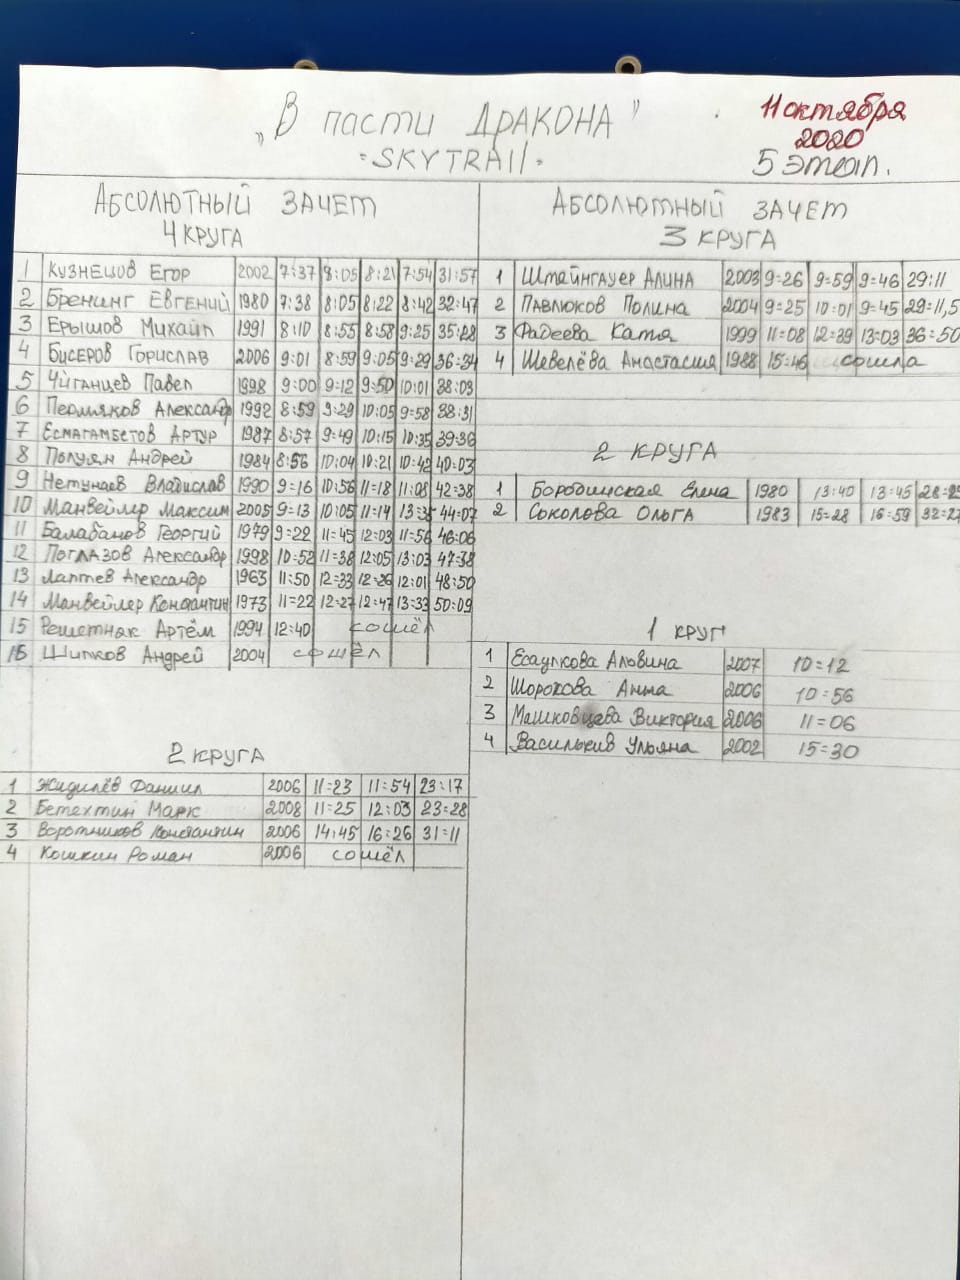 „В пасти ДРАКОНА"
·SKYTRAIL·
11 октября
2020
5 этап.
АБСОЛЮТНЫЙ ЗАЧЕТ
4 КРУГА
1 Кузнецов Егор 2002 7:37 8:05 8:21 7:54 31:57
2 Бренинг Евгений 1980 7:38 8:05 8:22 8:42 32:47
3 Ерышов Михаил 1991 8:10 8:55 8:58 9:25 35:28
4 Бисеров Горислав 2006 9:01 8:59 9:05 9:29 36:34
5 Чиганцев Павел 1998 9:00 9:12 9:50 10:01 38:03
6 Пермяков Александр 1992 8:59 9:29 10:05 9:58 38:31
7 Есмагамбетов Артур 1987 8:57 9:49 10:15 10:35 39:36
8 Полуян Андрей 1984 8:56 10:04 10:21 10:42 40:03
9 Нетунаев Владислав 1990 9=16 10:56 11=18 11:08 42=38
10 Манвейлер Максим 2005 9=13 10:05 11=14 44=07
11 Балабанов Георгий 1979 9=22 11=45 12:03 11=56 46=06
12 Поглазов Александр 1998 10=52 11=38 12:05 13=03 47=38
13 Лаптев Александр 1963 11:50 12=33 12=26 12:01 48=50
14 Манвейлер Константин 1973 11=22 12=27 12=47 13=33 50=09
15 Решетняк Артём 1994 12:40 сошёл
16 Шипков Андрей 2004 сошёл
2 КРУГА
1 Жидилёв Даниил 2006 11=23 11=54 23=17
2 Бетехтин Марк 2008 11=25 12=03 23=28
3 Воротников Константин 2006 14=45 16=26 31=11
4 Кошкин Роман 2006 сошёл
АБСОЛЮТНЫЙ ЗАЧЕТ
3 КРУГА
1 Штайнгауер Алина 2003 9=26 9=59 9=46 29:11
2 Павлюков Полина 2004 9=25 10=01 9=45 29=11,5
3 Фадеева Катя 1999 11=08 12=39 13=03 36=50
4 Шевелёва Анастасия 1988 15=46 сошла
2 КРУГА
1 Бородинская Елена 1980 13:40 13=45
2 Соколова Ольга 1983 15=28 16=59
1 КРУГ
1 Есаулкова Альвина 2007 10=12
2 Шорохова Анна 2006 10=56
3 Машковцева Виктория 2006 11=06
4 Василькив Ульяна 2002 15=30